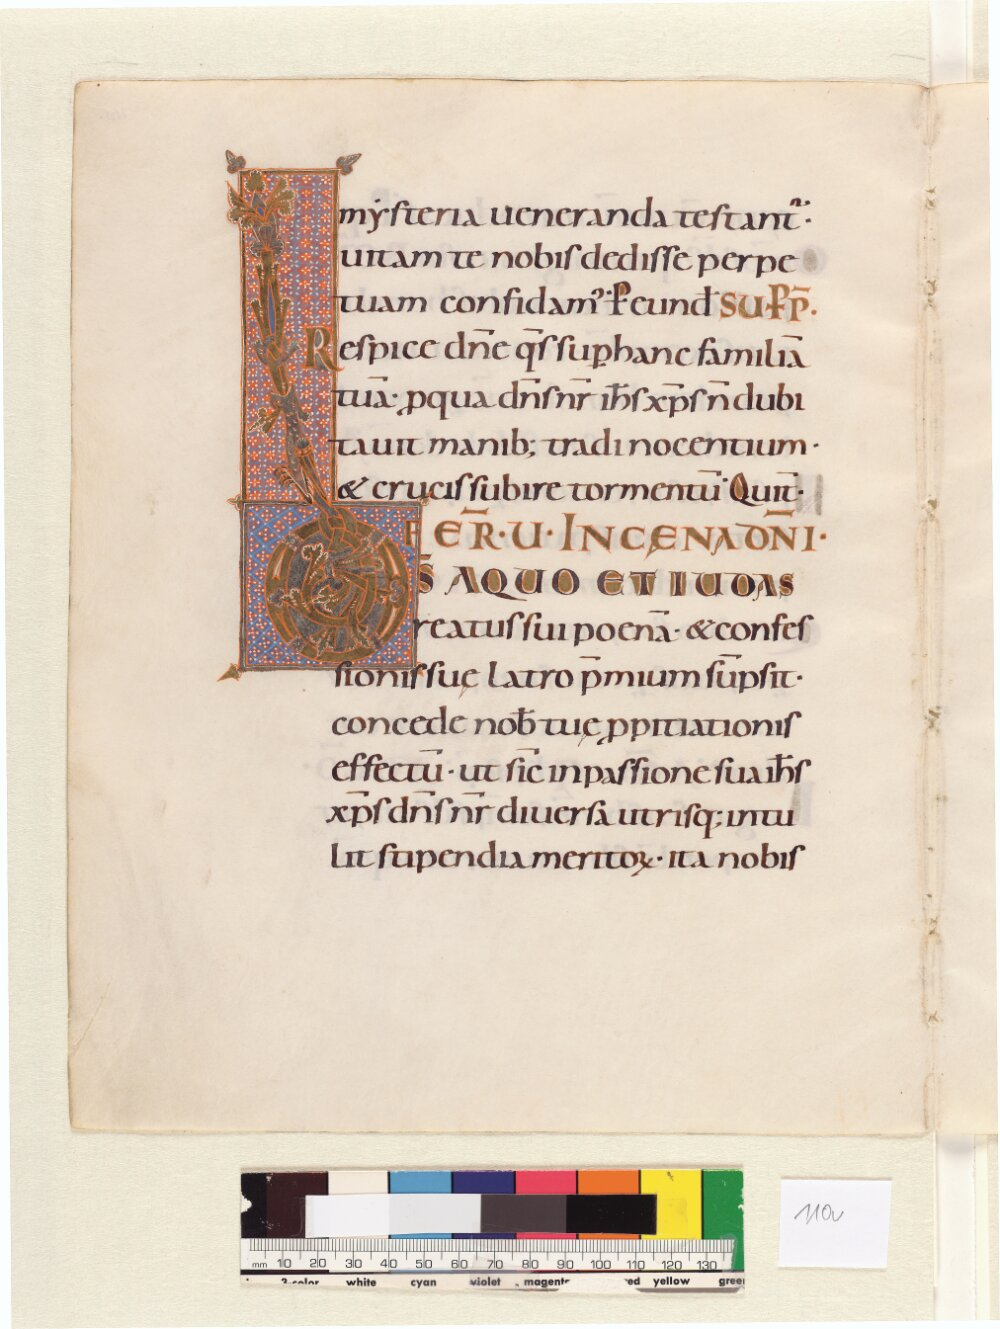 mẏsteria ueneranda testant᷑·
uitam te nobis dedisse perpe
tuam confidam᾽· P̄ eund̄ SUP P̄P̄·
Respice dn̄e q̄s sup hanc familiā
tuā· ꝑqua dn̄s nr̄ ih̄s xp̄s n̄ dubi
tauit manib; tradi nocentium·
& crucis subire tormentū· Quit̄·
FER̄·U· IN CENA DN̄I·
D̄S A QUO ET IUDAS
reatus sui poenā· & confes
sionis suę latro p̄mium sūpsit·
concede nob̄ tuę ꝓpitiationis
effectū· ut sic̄ in passione sua ih̄s
xp̄s dn̄s nr̄ diuersa utrisq; intu
lit stipendia meritoꝝ· ita nobis
110v
mm 10 20 30 40 50 60 70 80 90 100 110 120 130
3-color white cyan violet magenta red yellow green